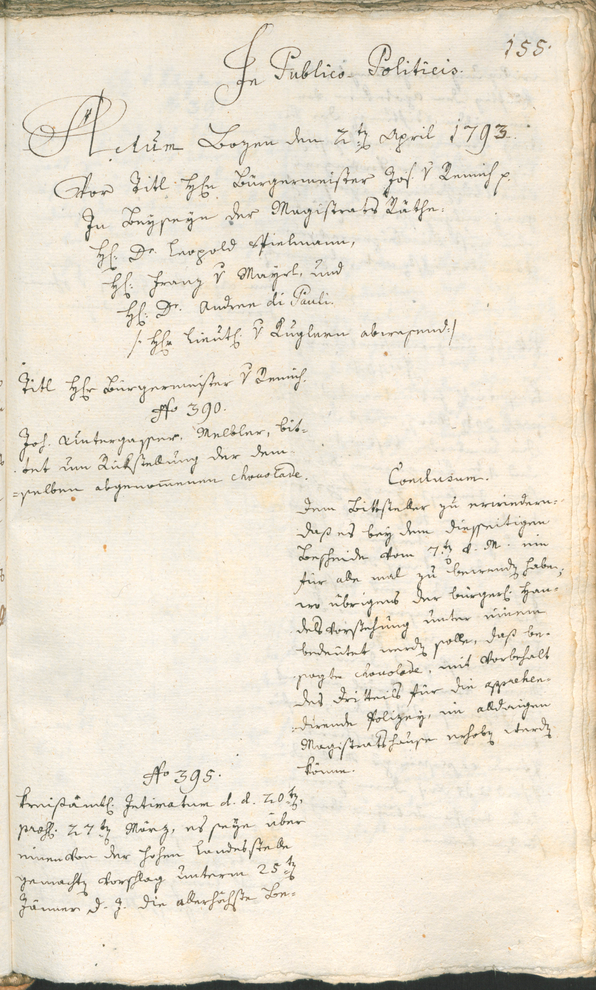 155.
In Publico Politicis.
Actum Bozen den 2t April 1793.
Vor Titl Hhn Bürgermeister Jos. v Remich p
In Beyseyn der Magistrats Räthe.
Hh. Dr. Leopold Spielmann,
Hh. Franz v Mayrl, und
Hh. Dr. Andree di Pauli.
/: Hhr Lieut. v Kuglern abwesend :/
Titl Hhr Bürgermeister v Remich.
No 390.
Joh. Untergasser, Melbler, bit-
tet um Rükstellung der dem-
selben abgenommenen Chocolade.
Conclusum.
Dem Bittsteller zu erwiedern:
daß es bey dem diesseitigen
Bescheide vom 7t d. M. ein
für alle mal zu bewendt habe,
wo übrigens der bürgerl. Han-
dels Vorstehung unter einem
bedeutet werdt solle, daß be-
sagte Chocolade, mit Vorbehalt
des Drittels für die apprehen-
dirende Polizey, im alldaigen
Magistratshause erhobt werdt
könne.
No 395.
Kreisämtl. Intimatum d. d. 20t,
27t März, es seye über
einen von der hohen Landesstelle
gemacht Vorschlag unterm 25t
Jänner d. J. die allerhöchste Be-